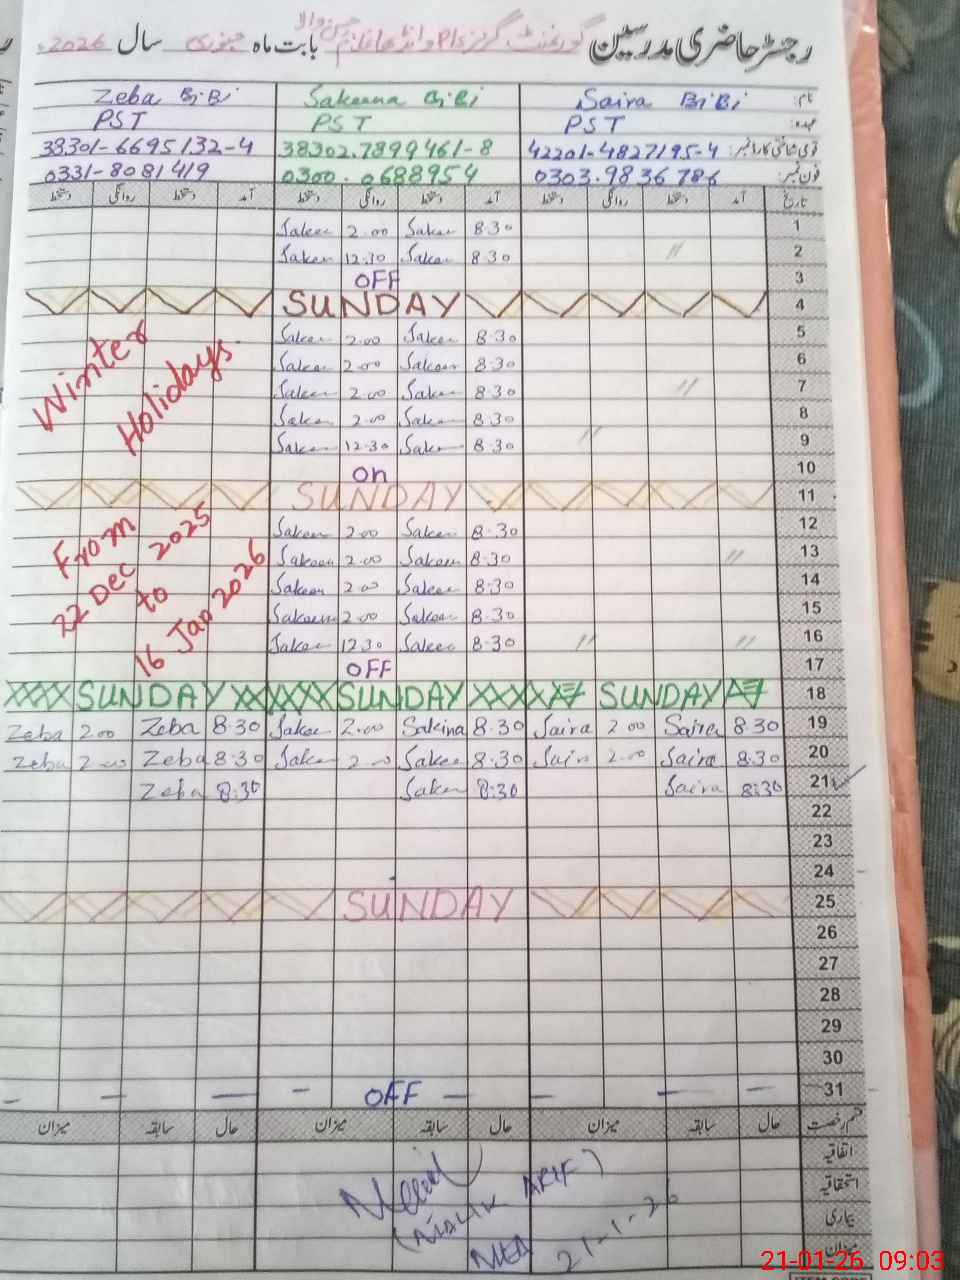 رجسٹر حاضری مدرسین گورنمنٹ گرلز بابت ماہ جنوری سال 2026ء
نام: Saira BiBi Sakeena BiBi Zeba BiBi
عہدہ: PST PST PST
قومی شناختی کارڈ نمبر: 42201-4827195-4 38302.7899461-8 38301-6695132-4
فون نمبر: 0303.9836786 0300.0688954 0331-8081419
تاریخ آمد دستخط روانگی دستخط آمد دستخط روانگی دستخط آمد دستخط روانگی دستخط
Sakeen 2.00 Sakeen 8.30 1
Sakeen 12.30 Sakeen 8.30 〃 2
OFF 3
SUNDAY 4
Sakeen 2.00 Sakeen 8.30 5
Sakeen 2.00 Sakeen 8.30 6
Sakeen 2.00 Sakeen 8.30 〃 7
Sakeen 2.00 Sakeen 8.30 8
Sakeen 12.30 Sakeen 8.30 〃 9
On 10
Winter
Holidays
SUNDAY 11
Sakeen 2.00 Sakeen 8.30 12
Sakeen 2.00 Sakeen 8.30 〃 13
Sakeen 2.00 Sakeen 8.30 14
Sakeen 2.00 Sakeen 8.30 15
Sakeen 12.30 Sakeen 8.30 〃 〃 16
OFF 17
From
22 Dec 2025
to
16 Jan 2026
SUNDAY SUNDAY SUNDAY 18
Zeba 2.00 Zeba 8.30 Sakee 2.00 Sakina 8.30 Saira 2.00 Saira 8.30 19
Zeba 2.00 Zeba 8.30 Sakee 2.00 Sakee 8.30 Saira 2.00 Saira 8.30 20
Zeba 8:30 Sakee 8:30 Saira 8:30 21
22
23
24
SUNDAY 25
26
27
28
29
30
OFF 31
قسم رخصت حال سابقہ میزان حال سابقہ میزان حال سابقہ میزان
اتفاقیہ
استحقاقیہ
بیماری
میزان
ARIF)
MEA
21-1-26
21-01-26 09:03